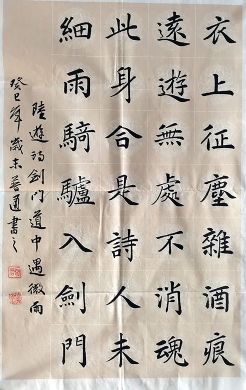 衣上征塵雜酒痕
遠遊無處不消魂
此身合是詩人未
細雨騎驢入劍門
陸遊詩劍門道中遇微雨
癸巳年歲末普通書之